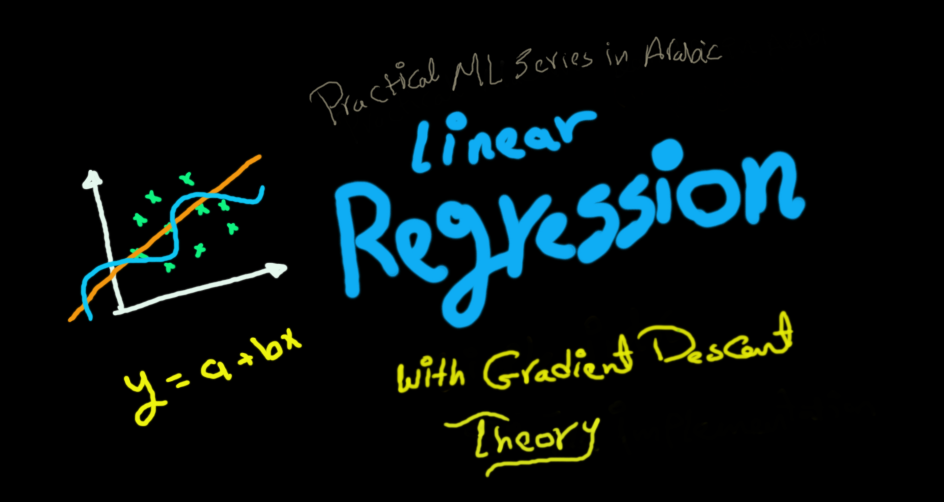 Practical ML Series in Arabic
Linear
Regression
y = a + bx
with Gradient Descent
Theory